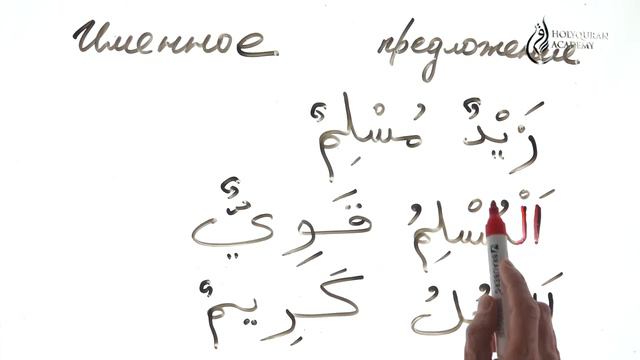 Именное предложение
HOLY QURAN
ACADEMY
زَيْدٌ مُسْلِمٌ
اَلْمُسْلِمُ قَوِيٌّ
كَرِيمٌ